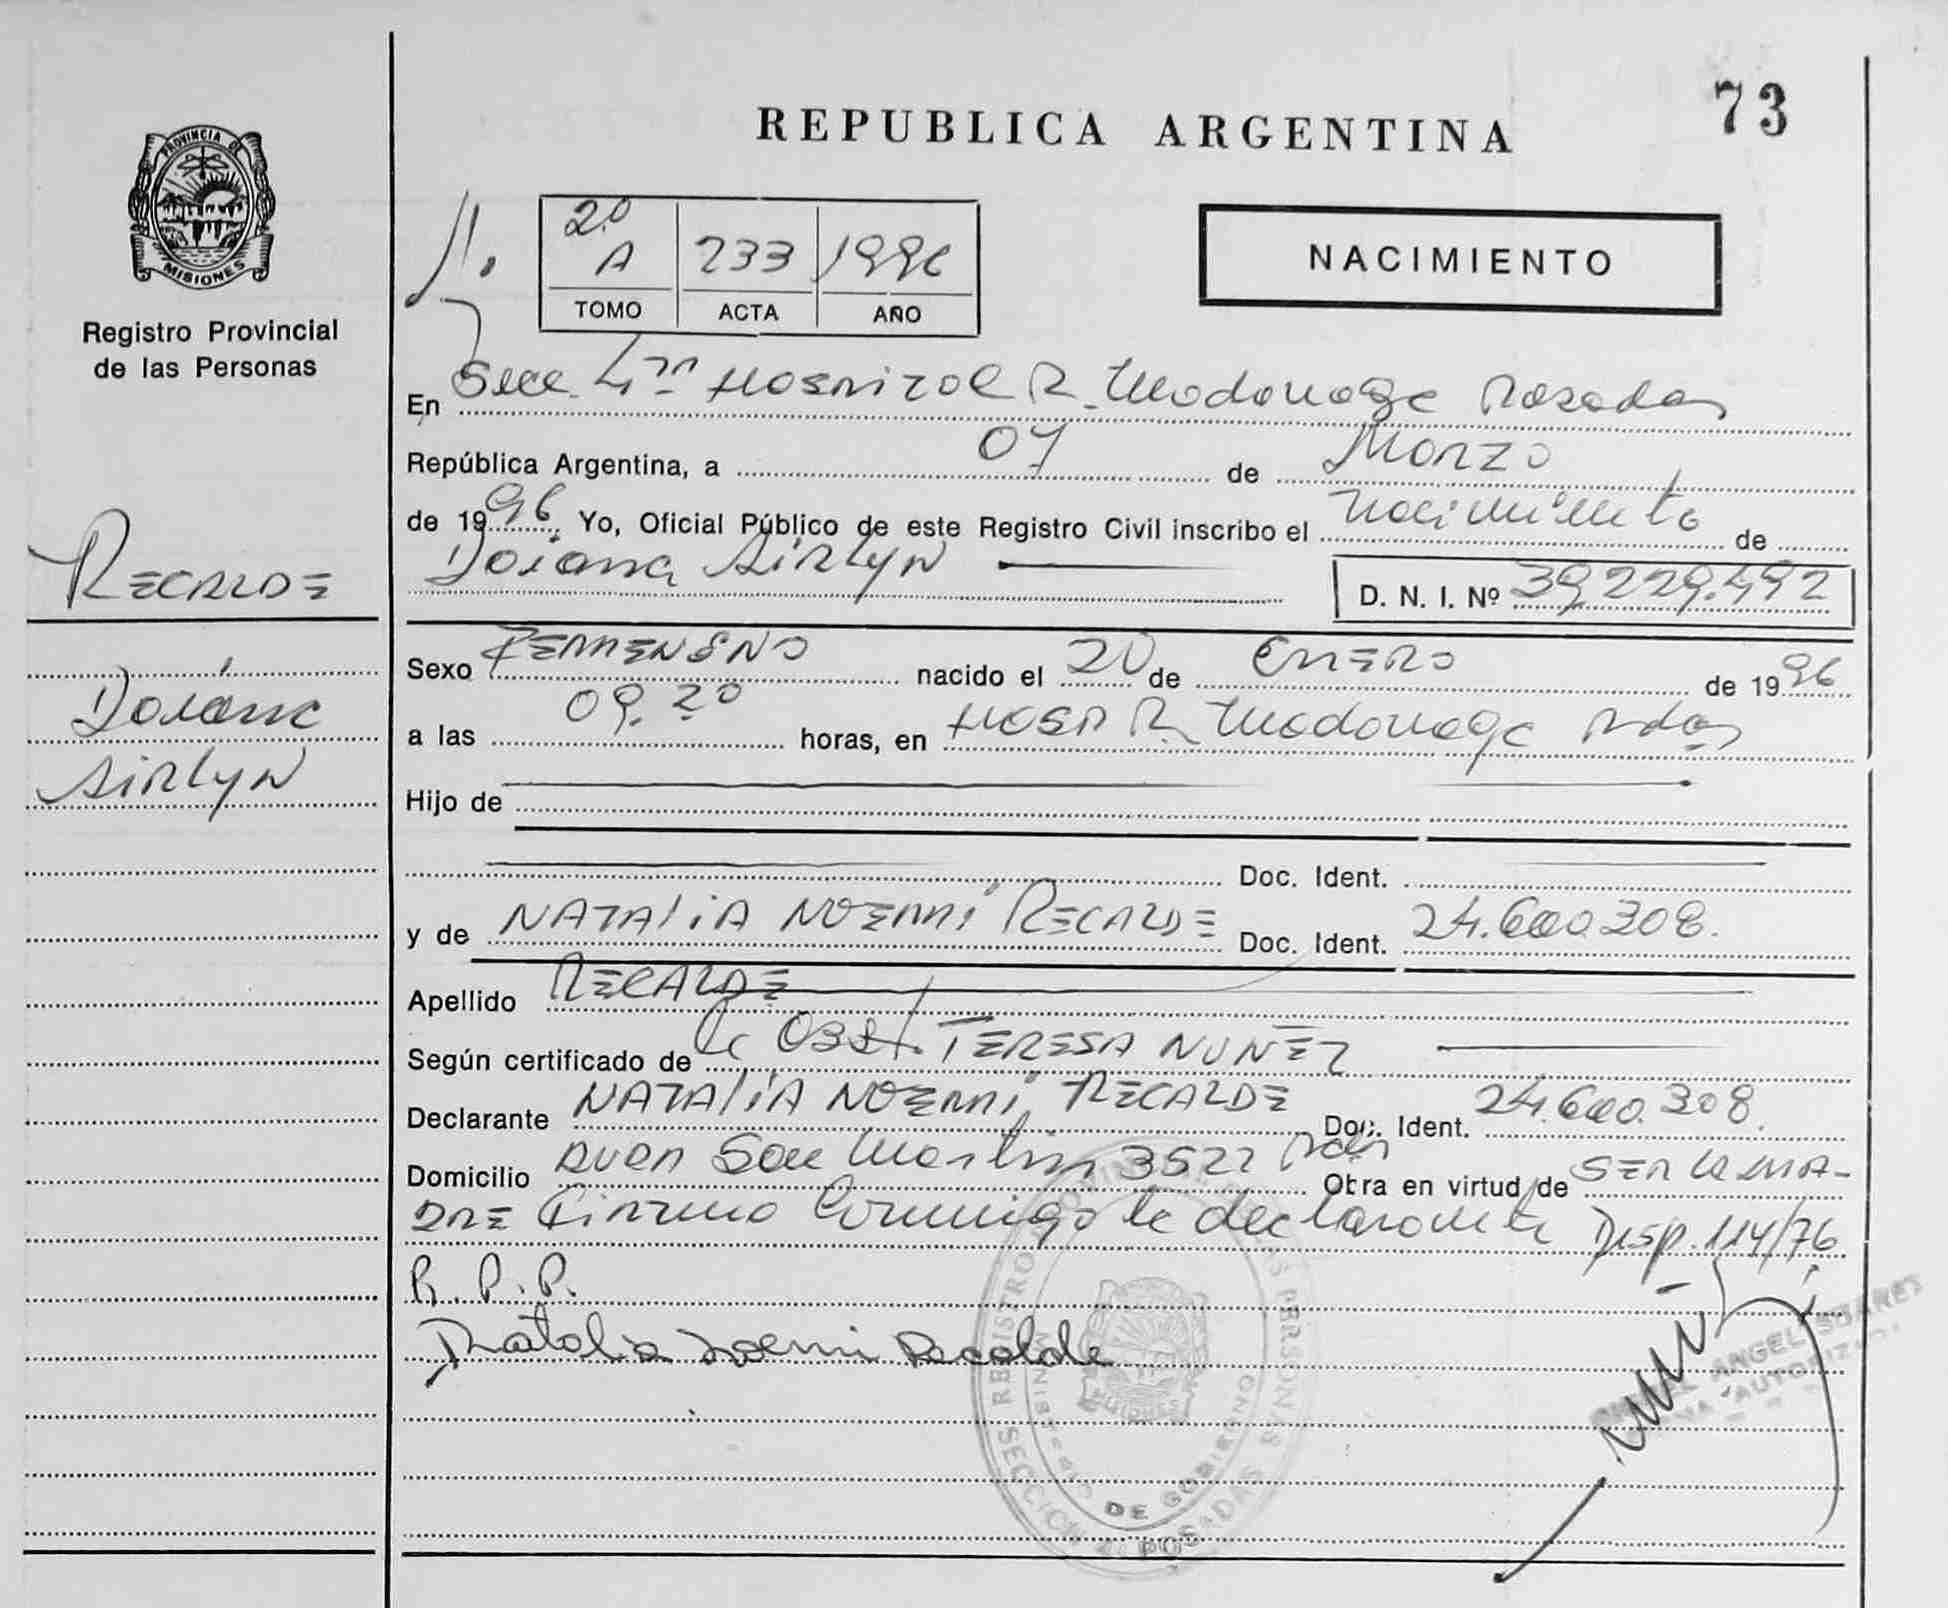 73
REPUBLICA ARGENTINA
PROVINCIA DE
MISIONES
Registro Provincial
de las Personas
2º A 233 1996
TOMO ACTA AÑO
NACIMIENTO
En Secc 4ta Hospital R. Madariaga Posadas
República Argentina, a 07 de Marzo
de 1996. Yo, Oficial Público de este Registro Civil inscribo el Nacimiento de
Daiana Airlyn D. N. I. Nº 39.229.492
RECALDE
Daiana
Airlyn
Sexo FEMMENENO nacido el 20 de ENERO de 1996
a las 09.20 horas, en HOSP R. Madariaga Pdas
Hijo de
Doc. Ident.
y de NATALIA NOEMÍ RECALDE Doc. Ident. 24.600.308.
Apellido RECALDE
Según certificado de la Obst. TERESA NUÑEZ
Declarante NATALIA NOEMÍ RECALDE Doc. Ident. 24.600.308.
Domicilio AVDA San Martin 3522 Pdas Obra en virtud de SER LA MA-
DRE Firmo Conmigo la declarante Disp. 114/76
R. P. P.
Natalia Noemi Recalde
REGISTRO PROVINCIAL DE LAS PERSONAS
MISIONES
DE GOBIERNO
SECCION POSADAS
ANGEL SUAREZ